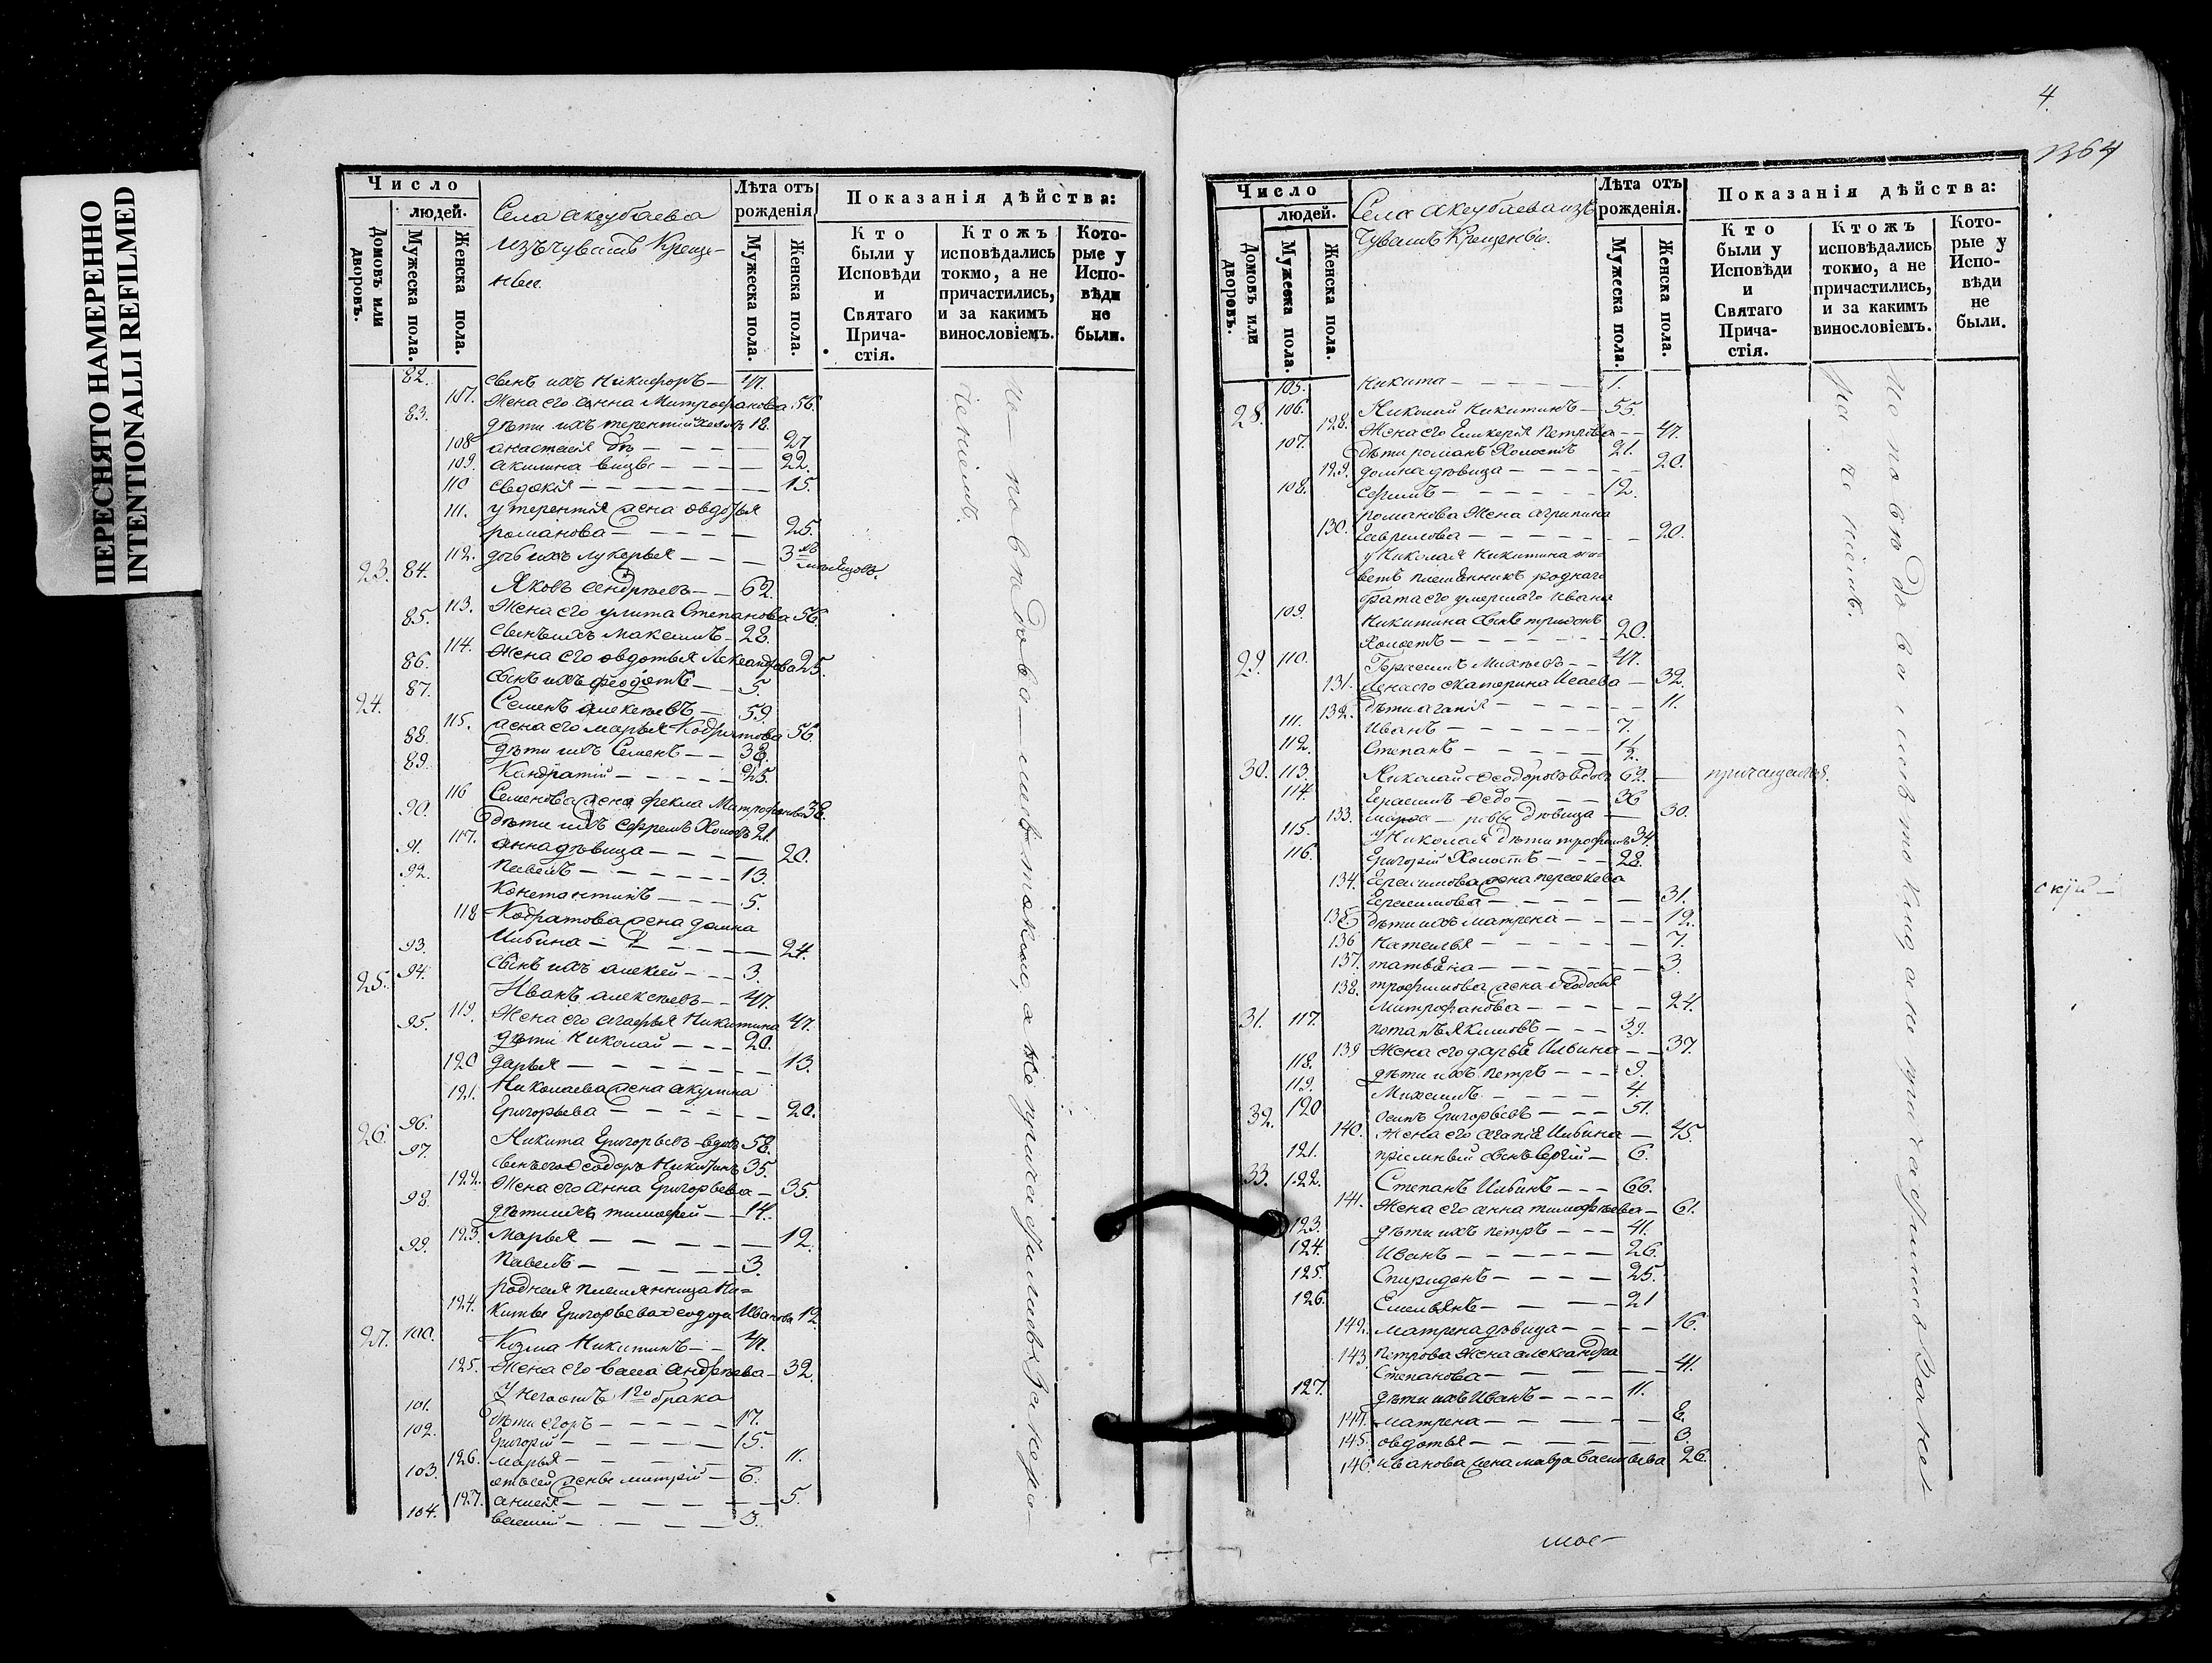 ПЕРЕСНЯТО НАМЕРЕННО
INTENTIONALLI REFILMED
Число
людей.
Домовъ или дворовъ.
Мужеска пола.
Женска пола.
Села Акзубаева
изъ чувашъ Креще-
ныи
Лѣта отъ рожденія
Мужеска пола.
Женска пола.
Показанія дѣйства:
Кто были у Исповѣди и Святаго Прича-стія.
Ктожъ исповѣдались токмо, а не причастились, и за какимъ винословіемъ.
Кото-рые у Испо-вѣди не были.
82. сынъ ихъ Никифоръ — 47.
107. Жена его анна Митрофанова 56.
83. дѣти ихъ терентій холостъ 18.
108 анастасія — 27
109. акилина — 22.
110 евдокія — 15.
111. у терентія жена овдотья
романова — 25.
112. дочь ихъ лукерья — 3
23. 84. Яковъ Андрѣевъ — 62.
113. Жена его улита Степанова 56.
85. сынъ ихъ максимъ — 28.
114. Жена его овдотья Александрова 25.
86. сынъ ихъ феодотъ — 5.
24. 87. Семенъ алексѣевъ — 59.
115. жена его марья Кодратова 56.
88. дѣти ихъ Семенъ — 38.
89. Кандратій — 25.
116 Семенова жена фекла Митрофанова 38.
90. дѣти ихъ ефремъ Холостъ 21.
117. анна дѣвица — 20.
91. павелъ — 13.
92. Константинъ — 5.
118 Кодратова жена домна
Ильина — 24.
93. сынъ ихъ алексей — 3.
25. 94. Иванъ алексѣевъ — 47.
119. Жена его агафья Никитина 47.
95. дѣти Николай — 20.
120 дарья — 13.
121. Николаева жена акулина
Григорьева — 20.
26. 96. Никита Григорьевъ вдовъ 58.
97. сынъ его Ѳеодоръ Никитинъ 35.
122. Жена его Анна Григорьева — 35.
98. дѣти ихъ тимофей — 14.
123. Марья — 12.
99. Павелъ — 3.
родная племянница Ни-
124. киты Григорьева Ѳедора Иванова 12
27. 100. Козма Никитинъ — 47.
125. Жена его васа Андрѣева — 32.
У него отъ 1го брака
101. дѣти егоръ — 17.
102. Григорій — 15.
126. марья — 11.
103. отъ сей жены митрій — 6.
127. анисія — 5.
104. василій — 3.
по исповѣдывались токмо, а не причастились За нера-
ченіемъ.
4.
1364
Число
людей.
Домовъ или дворовъ.
Мужеска пола.
Женска пола.
Села Акзубаева изъ
Чувашъ Крещеныи.
Лѣта отъ рожденія.
Мужеска пола.
Женска пола.
Показанія дѣйства:
Кто были у Исповѣди и Святаго Прича-стія.
Ктожъ исповѣдались токмо, а не причастились, и за какимъ винословіемъ.
Кото-рые у Испо-вѣди не были.
105. никита — 1.
28. 106. Николай Никитинъ — 55.
128. Жена его Гликерія Петрова — 47.
107. дѣти романъ Холостъ 21.
129. домна дѣвица — 20.
108. ефимъ — 12.
романова Жена агрипина
130. Гаврилова — 20.
у Николая Никитина жи-
ветъ племянникъ роднаго
брата его умершаго Ивана
109. Никитина сынъ трифонъ
Холостъ — 20.
29. 110. Герасимъ Михѣевъ — 47.
131. Жена его екатерина Исаева — 32.
132. дѣти агапія — 11.
111. Иванъ — 7.
112. Степанъ — 1½.
30. 113. Николай Ѳеодоровъ вдовъ 62 — причащался.
114. Герасимъ Ѳедо — 36
133. дѣвица — 30.
115. У Николая дѣти трофимъ 34.
116. Григорій Холостъ — 28.
134. Герасимова жена
Герасимова — 31.
135 дѣти ихъ матрена — 12.
136 Наталья — 7.
137. татьяна — 3.
138. трофимова жена Ѳедосья
Митрофанова — 24.
31. 117. потапъ Якимовъ — 39.
139 Жена его дарья Ильина — 37.
118. дѣти ихъ петръ — 9.
119. Михаилъ — 4.
32. 120 осипъ Григорьевъ — 51.
140. Жена его агапія Ильина — 45.
121. пріемный сынъ Сергій — 6.
33. 122. Степанъ Ильинъ — 66.
141. Жена его анна тимофѣева — 61.
123. дѣти ихъ петръ — 41.
124. Иванъ — 26.
125. Спиридонъ — 25.
126. Емельянъ — 21
142. матрена дѣвица — 16.
143. Петрова Жена александра
Степанова — 41.
127. дѣти ихъ Иванъ — 11.
144. матрена — 8.
145. овдотья — 3.
146. иванова жена мавра васильева 26.